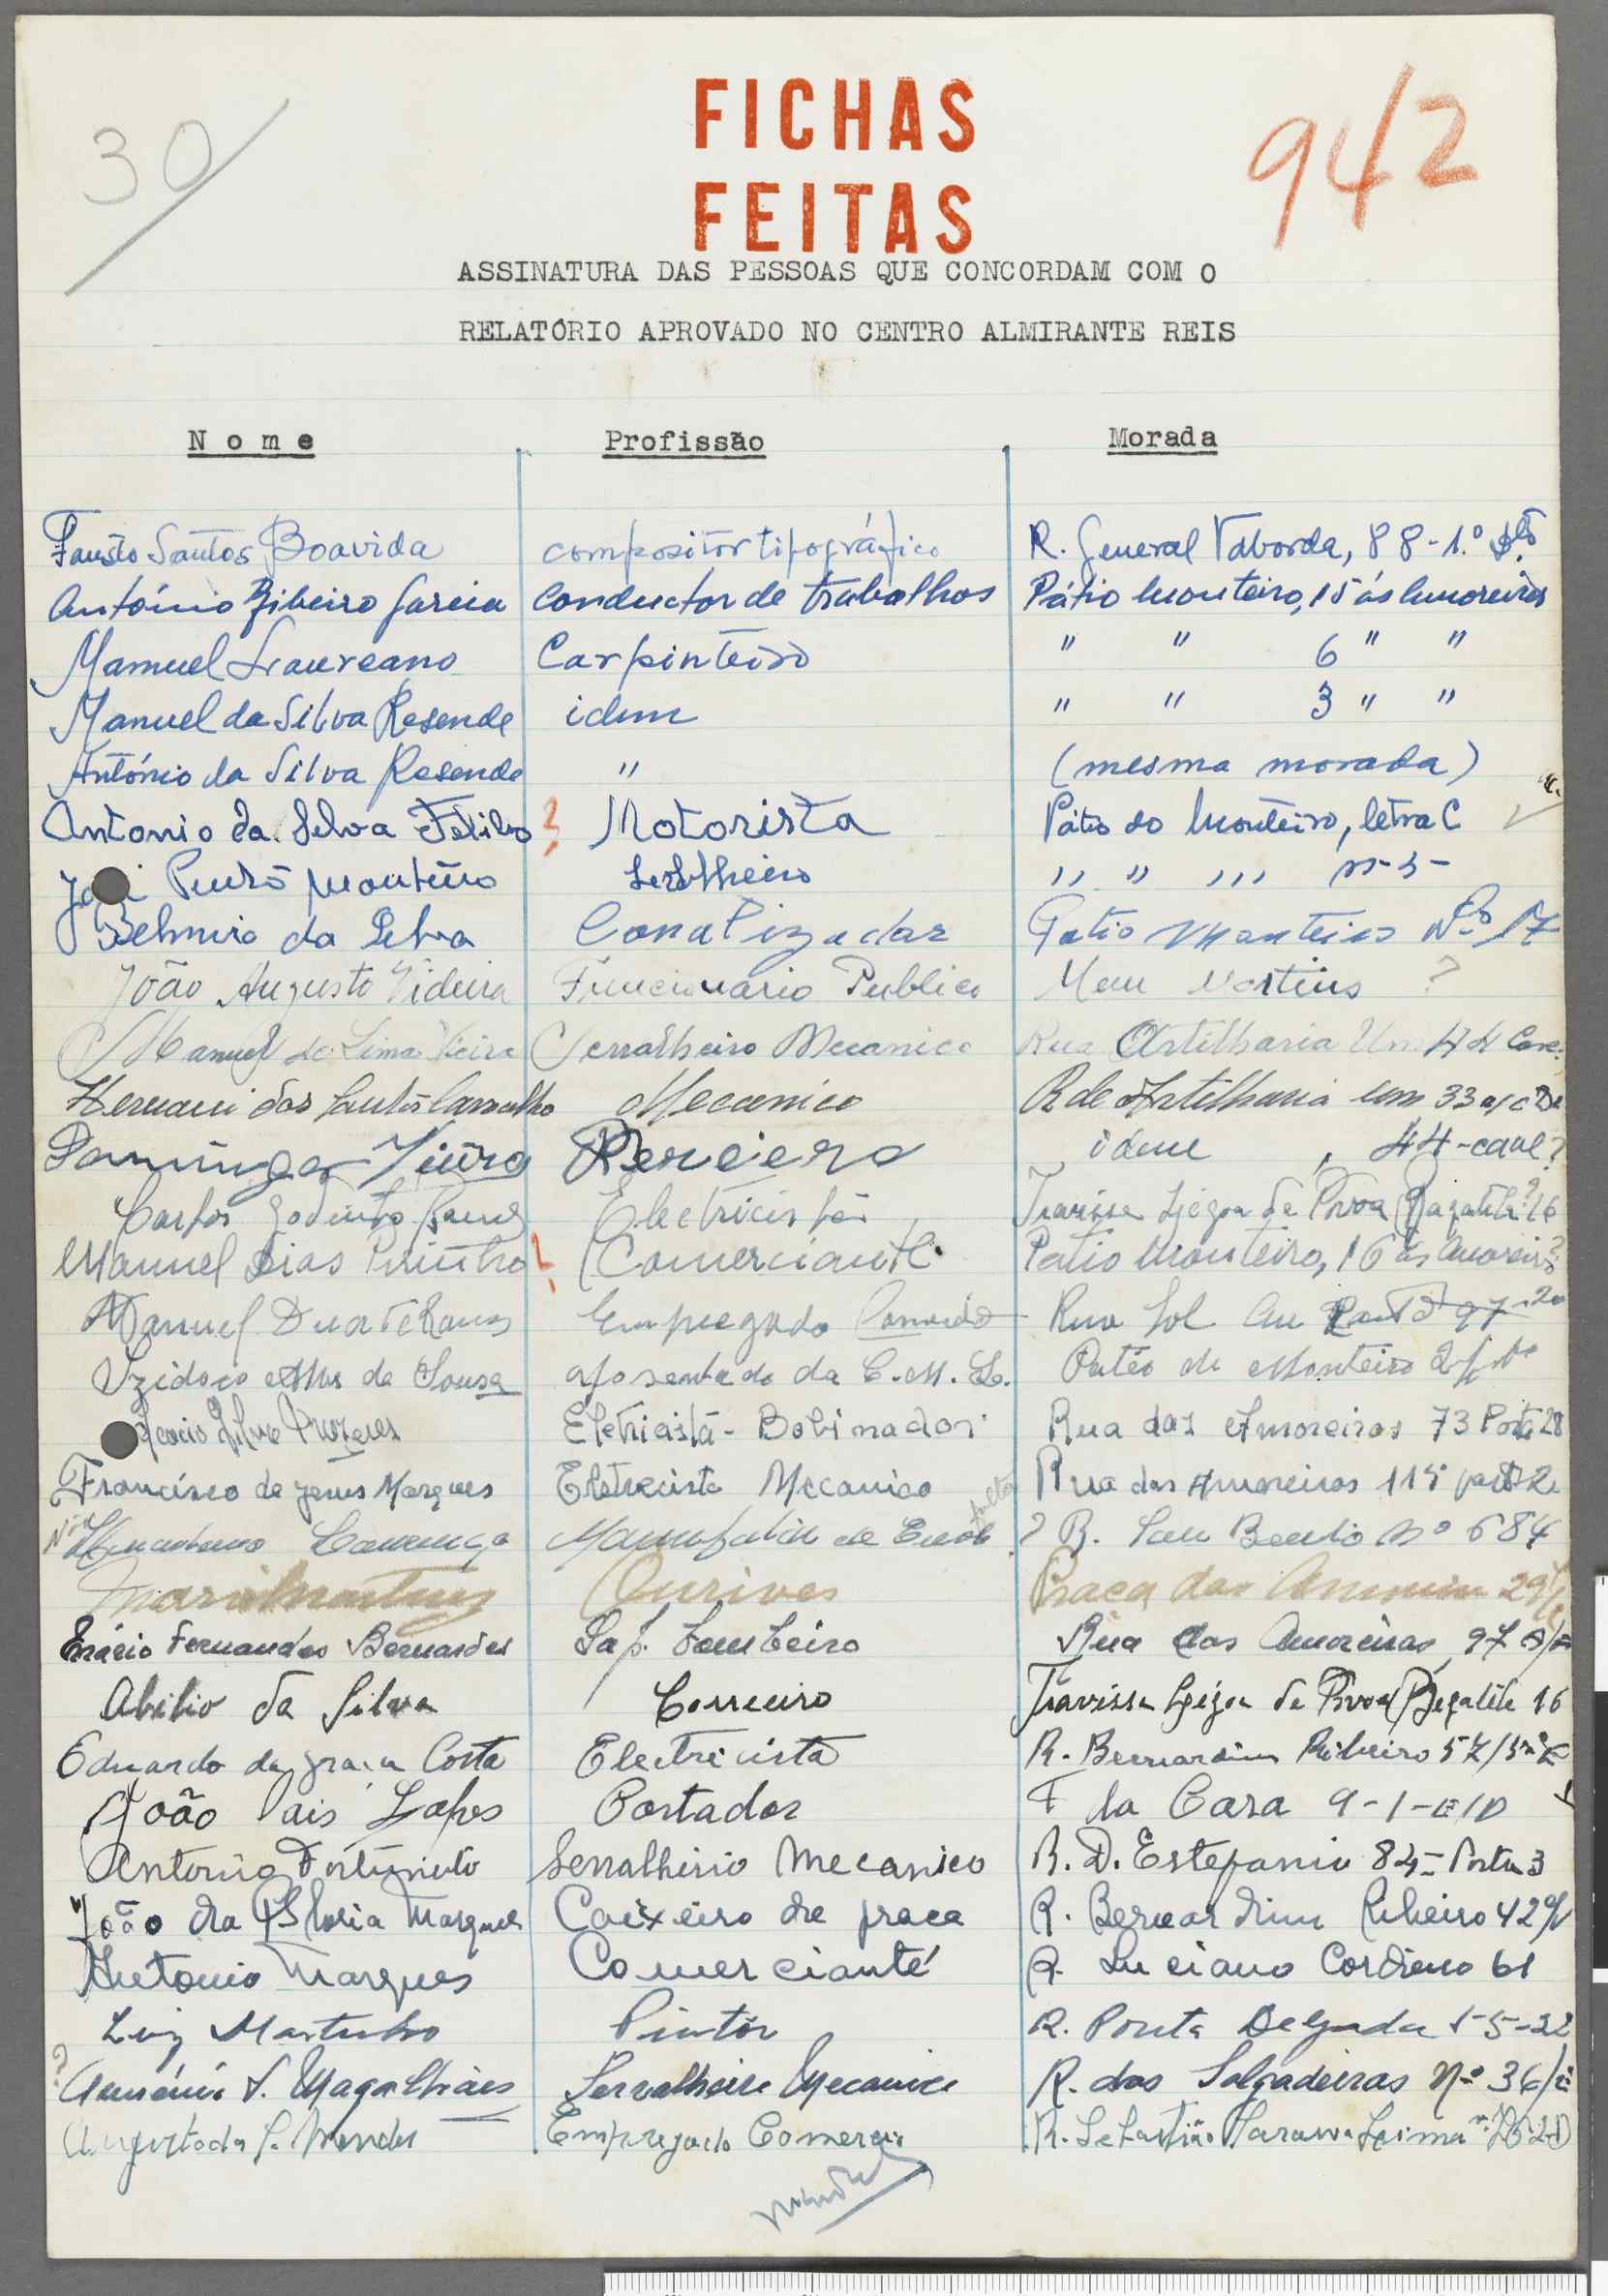 30
FICHAS
942
FEITAS
ASSINATURA DAS PESSOAS QUE CONCORDAM COM O
RELATÓRIO APROVADO NO CENTRO ALMIRANTE REIS
Nome Profissão Morada
Fausto Santos Boavida compositor tipográfico R. General Taborda, 88-1.º
António Ribeiro Garcia Conductor de trabalhos Pátio Monteiro, 15 ás Amoreiras
Manuel Laureano Carpinteiro " " 6 " "
Manuel da Silva Resende idem " " 3 " "
António da Silva Resende " (mesma morada)
Antonio da Silva ? Motorista Pátio do Monteiro, letra C
Monteiro Serralheiro " " "
Belmiro da Silva Canalizador Patio Monteiro Nº 17
João Augusto Videira Funcionario Publico Martins ?
Manuel de Lima Vieira Serralheiro Mecanico Rua Artilharia Um 44 Cave
Hernani dos Santos Carvalho Mecanico R de Artilharia um 33
Domingos Vieira idem, 44-cave ?
Carlos Electricista Travessa Légoa da Póvoa 16
Manuel Dias ? Comerciante Patio Monteiro, 16 ás Amoreiras
Manuel Duarte Ramos Empregado Rua Sol Au Rato 97
Izidoro Alves de Sousa aposentado da C.M.L. Patéo do Monteiro
Eletricista-Bobinador Rua das Amoreiras 73 Porta 28
Francisco de Jesus Marques Eletricista Mecanico Rua das Amoreiras 115 porta 2
Lourenço ? R. Sam Bento Nº 684
Mario Martins Ourives Praça das Amoreiras 29
Fernandes Bernardes Sap. Bombeiro Rua das Amoreiras, 97
Abilio da Silva Correeiro Travessa Légoa da Póvoa 16
Eduardo da Graça Costa Electricista R. Bernardim Ribeiro 57
João Pais Lopes Cortador T da Cara 9-1-
Antonio Fortunato Serralheiro Mecanico R. D. Estefania 84- Porta 3
João da Gloria Marques Caixeiro de praça R. Bernardim Ribeiro 42
Antonio Marques Comerciante R. Luciano Cordeiro 61
Luiz Martinho Pintor R. Ponta Delgada
? S. Magalhães Serralheiro Mecanico R. das Salgadeiras Nº 36
Augusto da S. Mendes Empregado Comercio R. Sebastião Saraiva Lima